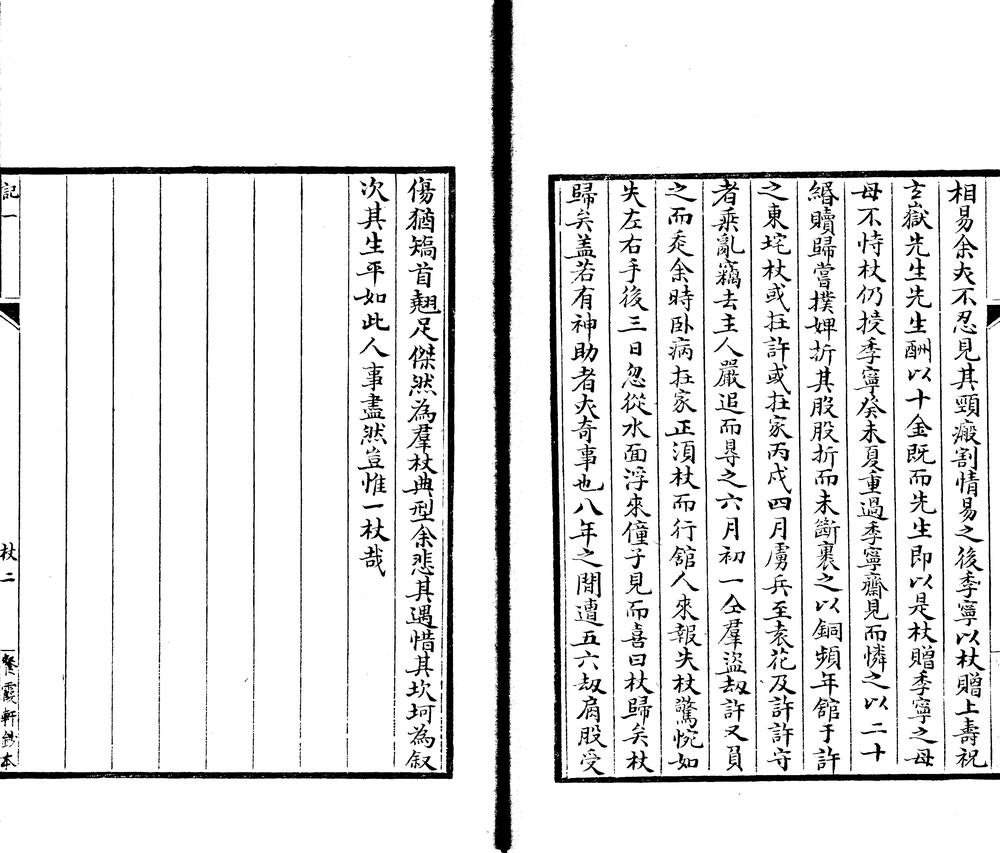 相易余大不忍見其頸瘢割情易之後季寧以杖贈上壽祝
玄嶽先生先生酬以十金既而先生即以是杖贈季寧之母
母不恃杖仍授季寧癸未夏重過季寧齋見而憐之以二十
緡贖歸嘗撲婢折其股股折而未斷裹之以銅頻年舘于許
之東垞杖或在許或在家丙戌四月虜兵至袁花及許許守
者乘亂竊去主人嚴追而尋之六月初一仝羣盜刼許又負
之而㤀余時卧病在家正須杖而行舘人來報失杖驚惋如
失左右手後三日忽從水面浮來僮子見而喜曰杖歸矣杖
歸矣盖若有神助者大奇事也八年之間遭五六刼肩股受
傷猶矯首翹足傑然為羣杖典型余悲其遇惜其坎坷為叙
次其生平如此人事盡然豈惟一杖哉
記一
杖二
餐霞軒鈔本